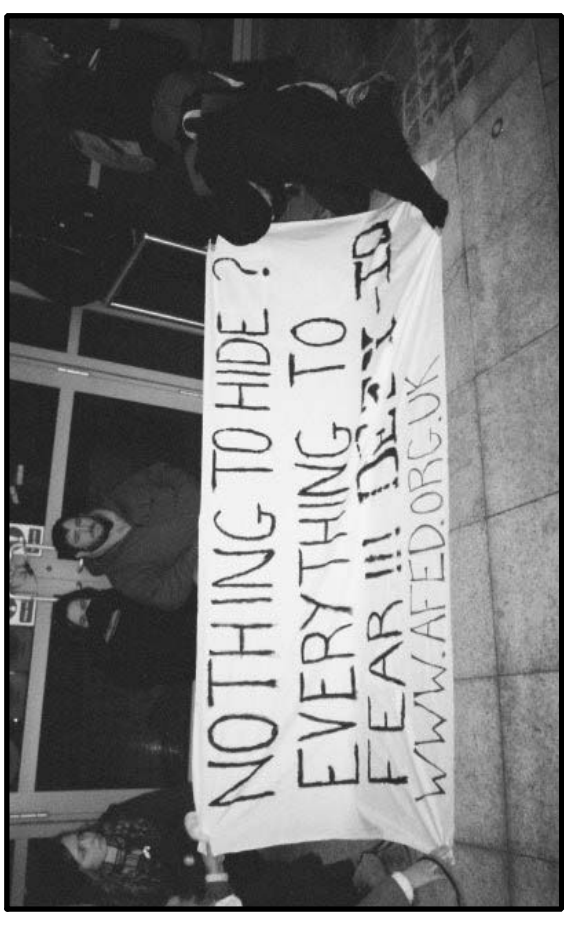 NOTHING TO HIDE ?
EVERYTHING TO
FEAR !!! DEFY-ID
WWW.AFED.ORG.UK